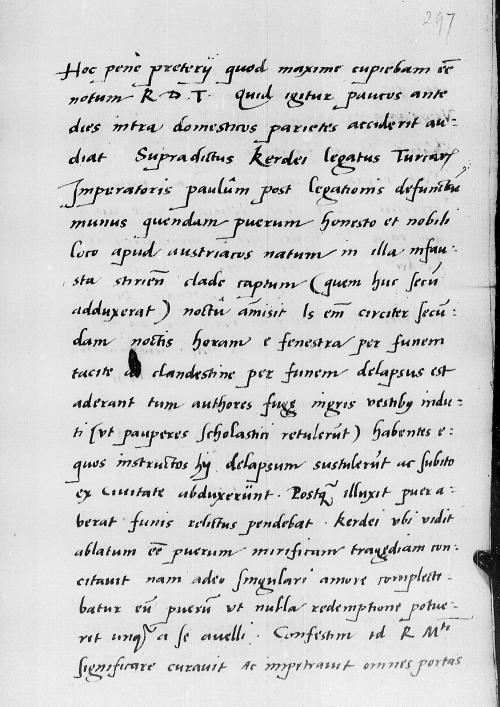 297
Hoc penè preterij quod maxime cupiebam eē
notum R. D. T. Quid igitur paucos ante
dies intra domesticos parietes acciderit au-
diat Supradictus Kerdei legatus Turcarū
Imperatoris paulūm post legationis defunctū
munus quendam puerum honesto et nobili
loco apud austriacos natum in illa infau-
sta stirieñ clade captum (quem huc secū
adduxerat) noctū amisit Is em̄ circiter secū-
dam noctis horam e fenestra per funem
tacite clandestine per funem delapsus est
aderant tum authores fugę nigris vestibꝫ indu-
ti (vt pauperes scholastici retulerūt) habentes e-
quos instructos hij delapsum sustulerūt ac subito
ex Ciuitate abduxerūnt. Postq̃ illuxit puer a-
berat funis relictus pendebat. Kerdei vbi vidit
ablatum eē puerum mirificam tragędiam con-
citauit nam adeo singulari amore complecte-
batur eū puerū vt nulla redemptione potue-
rit unq̃ a se auelli. Confestim id R. Mti
significare curauit Ac impetrauit omnes portas